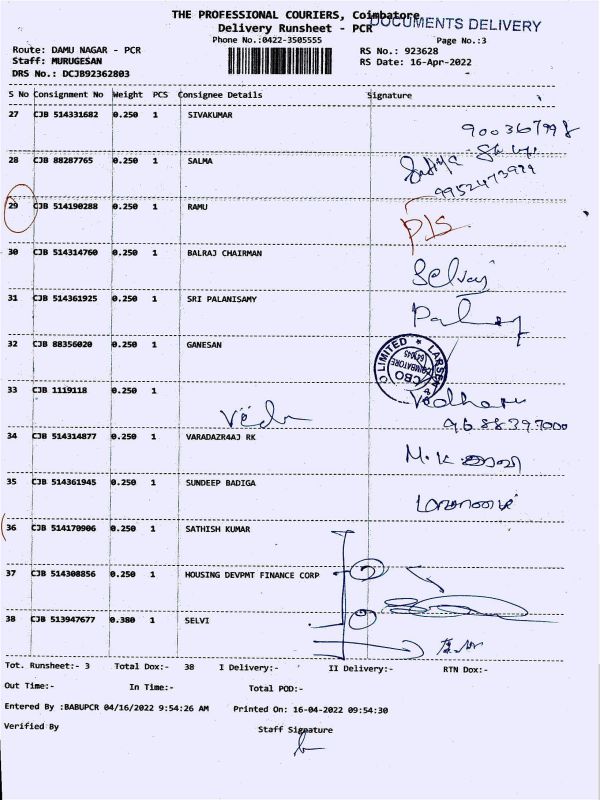 THE PROFESSIONAL COURIERS, Coimbatore
DOCUMENTS DELIVERY
Delivery Runsheet - PCR
Phone No.:0422-3505555 Page No.:3
Route: DAMU NAGAR - PCR RS No.: 923628
Staff: MURUGESAN RS Date: 16-Apr-2022
DRS No.: DCJB92362803
S No Consignment No Weight PCS Consignee Details Signature
27 CJB 514331682 0.250 1 SIVAKUMAR
28 CJB 88287765 0.250 1 SALMA
9952473979
29 CJB 514190288 0.250 1 RAMU
30 CJB 514314760 0.250 1 BALRAJ CHAIRMAN
Selvaj
31 CJB 514361925 0.250 1 SRI PALANISAMY
32 CJB 88356020 0.250 1 GANESAN
LIMITED * LARSEN
CBO
COIMBATORE
641045
33 CJB 1119118 0.250 1
9688397000
34 CJB 514314877 0.250 1 VARADAZR4AJ RK
35 CJB 514361945 0.250 1 SUNDEEP BADIGA
36 CJB 514170906 0.250 1 SATHISH KUMAR
37 CJB 514308856 0.250 1 HOUSING DEVPMT FINANCE CORP
38 CJB 513947677 0.380 1 SELVI
Tot. Runsheet:- 3 Total Dox:- 38 I Delivery:- II Delivery:- RTN Dox:-
Out Time:- In Time:- Total POD:-
Entered By :BABUPCR 04/16/2022 9:54:26 AM Printed On: 16-04-2022 09:54:30
Verified By Staff Signature